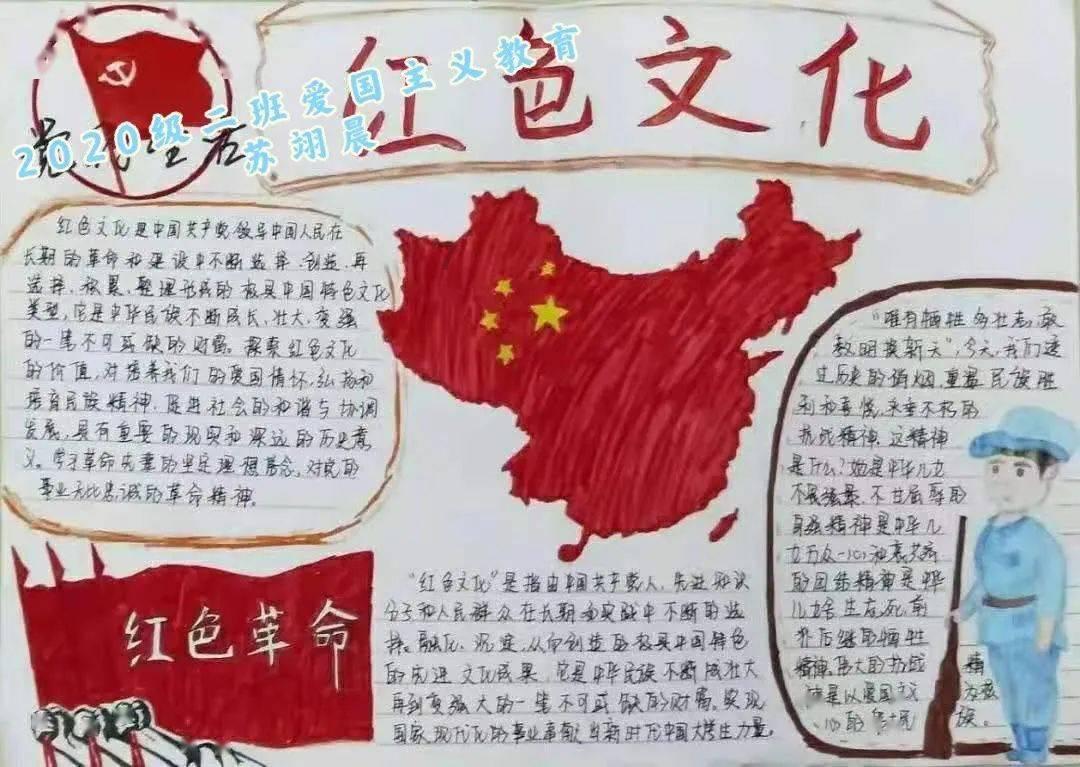 红色文化
2020级二班爱国主义教育
苏翊晨
党
红色文化是中国共产党领导中国人民在
长期的革命和建设中不断选择、创造、再
选择、积累、整理形成的极具中国特色文化
类型,它是中华民族不断成长、壮大、变强
的一笔不可或缺的财富。探索红色文化
的价值,对培养我们的爱国情怀,弘扬和
培育民族精神,促进社会的和谐与协调
发展,具有重要的现实和深远的历史意
义。学习革命先辈的坚定理想信念,对党的
事业无比忠诚的革命精神。
红色革命
"红色文化"是指由中国共产党人、先进知识
分子和人民群众在长期的实践中不断的选
择、融化、沉淀、从而创造的极具中国特色
的先进文化成果,它是中华民族不断成壮大
再到变强大的一笔不可或缺的财富,实现
国家现代化的事业奉献出新时代中国大学生力量。
"唯有牺牲多壮志,敢
教明换新天",今天,我们透
过历史的硝烟,重温民族胜
利和喜悦,来垂不朽的
抗战精神、这精神
是什么?她是中华儿女
不畏强暴、不甘屈辱的
自强精神是中华儿
女万众一心
的团结精神是中华
儿女舍生忘死、前
外后继的牺牲
精神,伟大的抗战精
是以爱国主义为
心的民族。